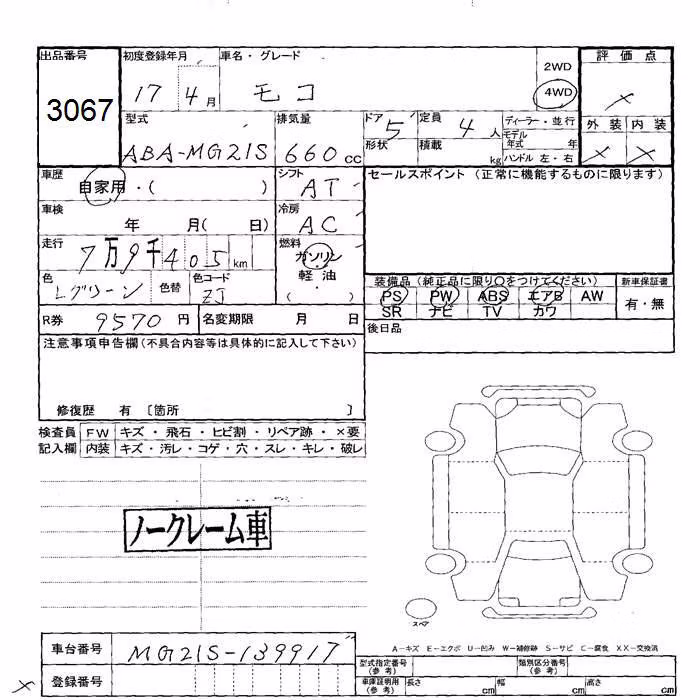 出品番号 初度登録年月 車名・グレード 評価点
3067 17 4月 モコ 2WD 4WD ×
型式 排気量 ドア 定員 ディーラー・並行 外装 内装
ABA-MG21S 660cc 5 4人 モデル年式 年 × ×
形状 積載 kg ハンドル 左・右
車歴 シフト セールスポイント (正常に機能するものに限ります)
自家用・( ) AT
車検 冷房
年 月( 日) AC
走行 燃料
7万9千405km ガソリン
軽油
( )
色 色替 色コード 装備品 (純正品に限り○をつけてください) 新車保証書
Lグリーン ZJ PS PW ABS エアB AW 有・無
SR ナビ TV カワ
R券 9570円 名変期限 月 日 後日品
注意事項申告欄(不具合内容等は具体的に記入して下さい)
修復歴 有 〔箇所 〕
検査員 FW キズ・飛石・ヒビ割・リペア跡・×要
記入欄 内装 キズ・汚レ・コゲ・穴・スレ・キレ・破レ
ノークレーム車
スペア
A-キズ E-エクボ U-凹み W-補修跡 S-サビ C-腐食 XX-交換済
車台番号 MG21S-139917
型式指定番号(参考) 類別区分番号(参考)
× 登録番号
車庫証明用(参考) 長さ cm 幅 cm 高さ cm